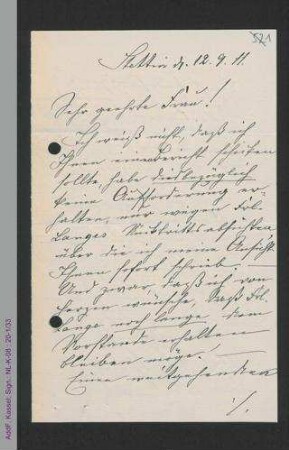 521
Stettin d. 12.9.11.
Sehr geehrte Frau!
Ich weiß nicht, daß ich
Ihnen einen Bericht schicken
sollte, habe diesbezüglich
keine Aufforderung er-
halten, nur wegen Frl.
Langes Rücktrittsabsichten,
über die ich meine Ansicht
Ihnen sofort schrieb.
Und zwar, daß ich von
Herzen wünsche, daß Frl.
Lange noch lange dem
Vorstande erhalten
bleiben möge.
Einen weitgehenden
./.
AddF, Kassel; Sign.: NL-K-08 ; 20-1/33